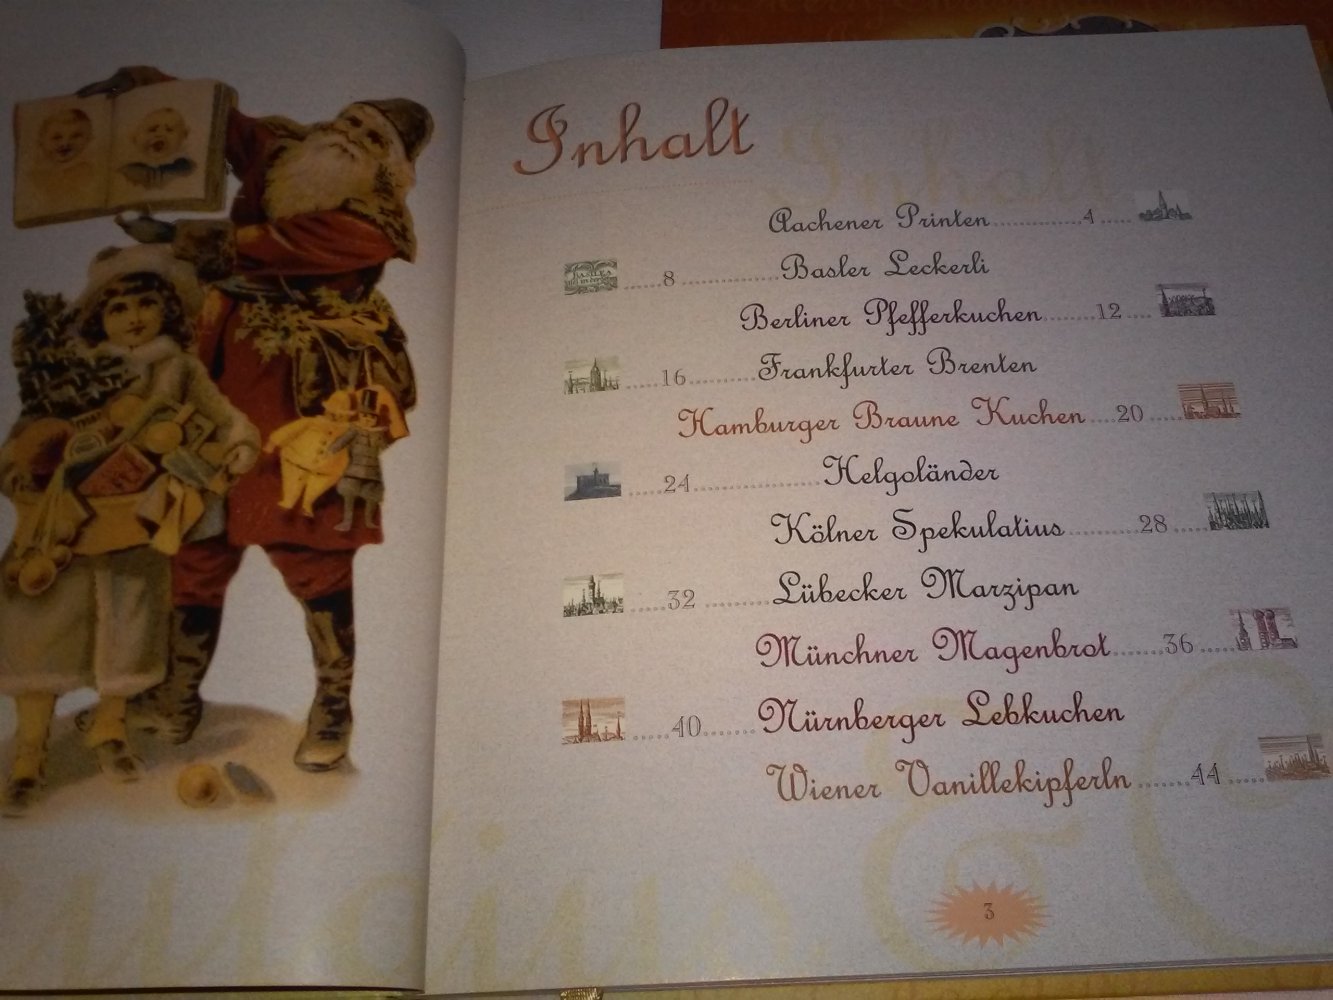 Inhalt
Aachener Printen..............4.....
.....8..............Basler Leckerli
Berliner Pfefferkuchen........12....
.....16...........Frankfurter Brenten
Hamburger Braune Kuchen....20.....
.....24....................Helgoländer
Kölner Spekulatius...........28.....
.....32..........Lübecker Marzipan
Münchner Magenbrot.......36.....
.....40.......Nürnberger Lebkuchen
Wiener Vanillekipferln.......44.....
3